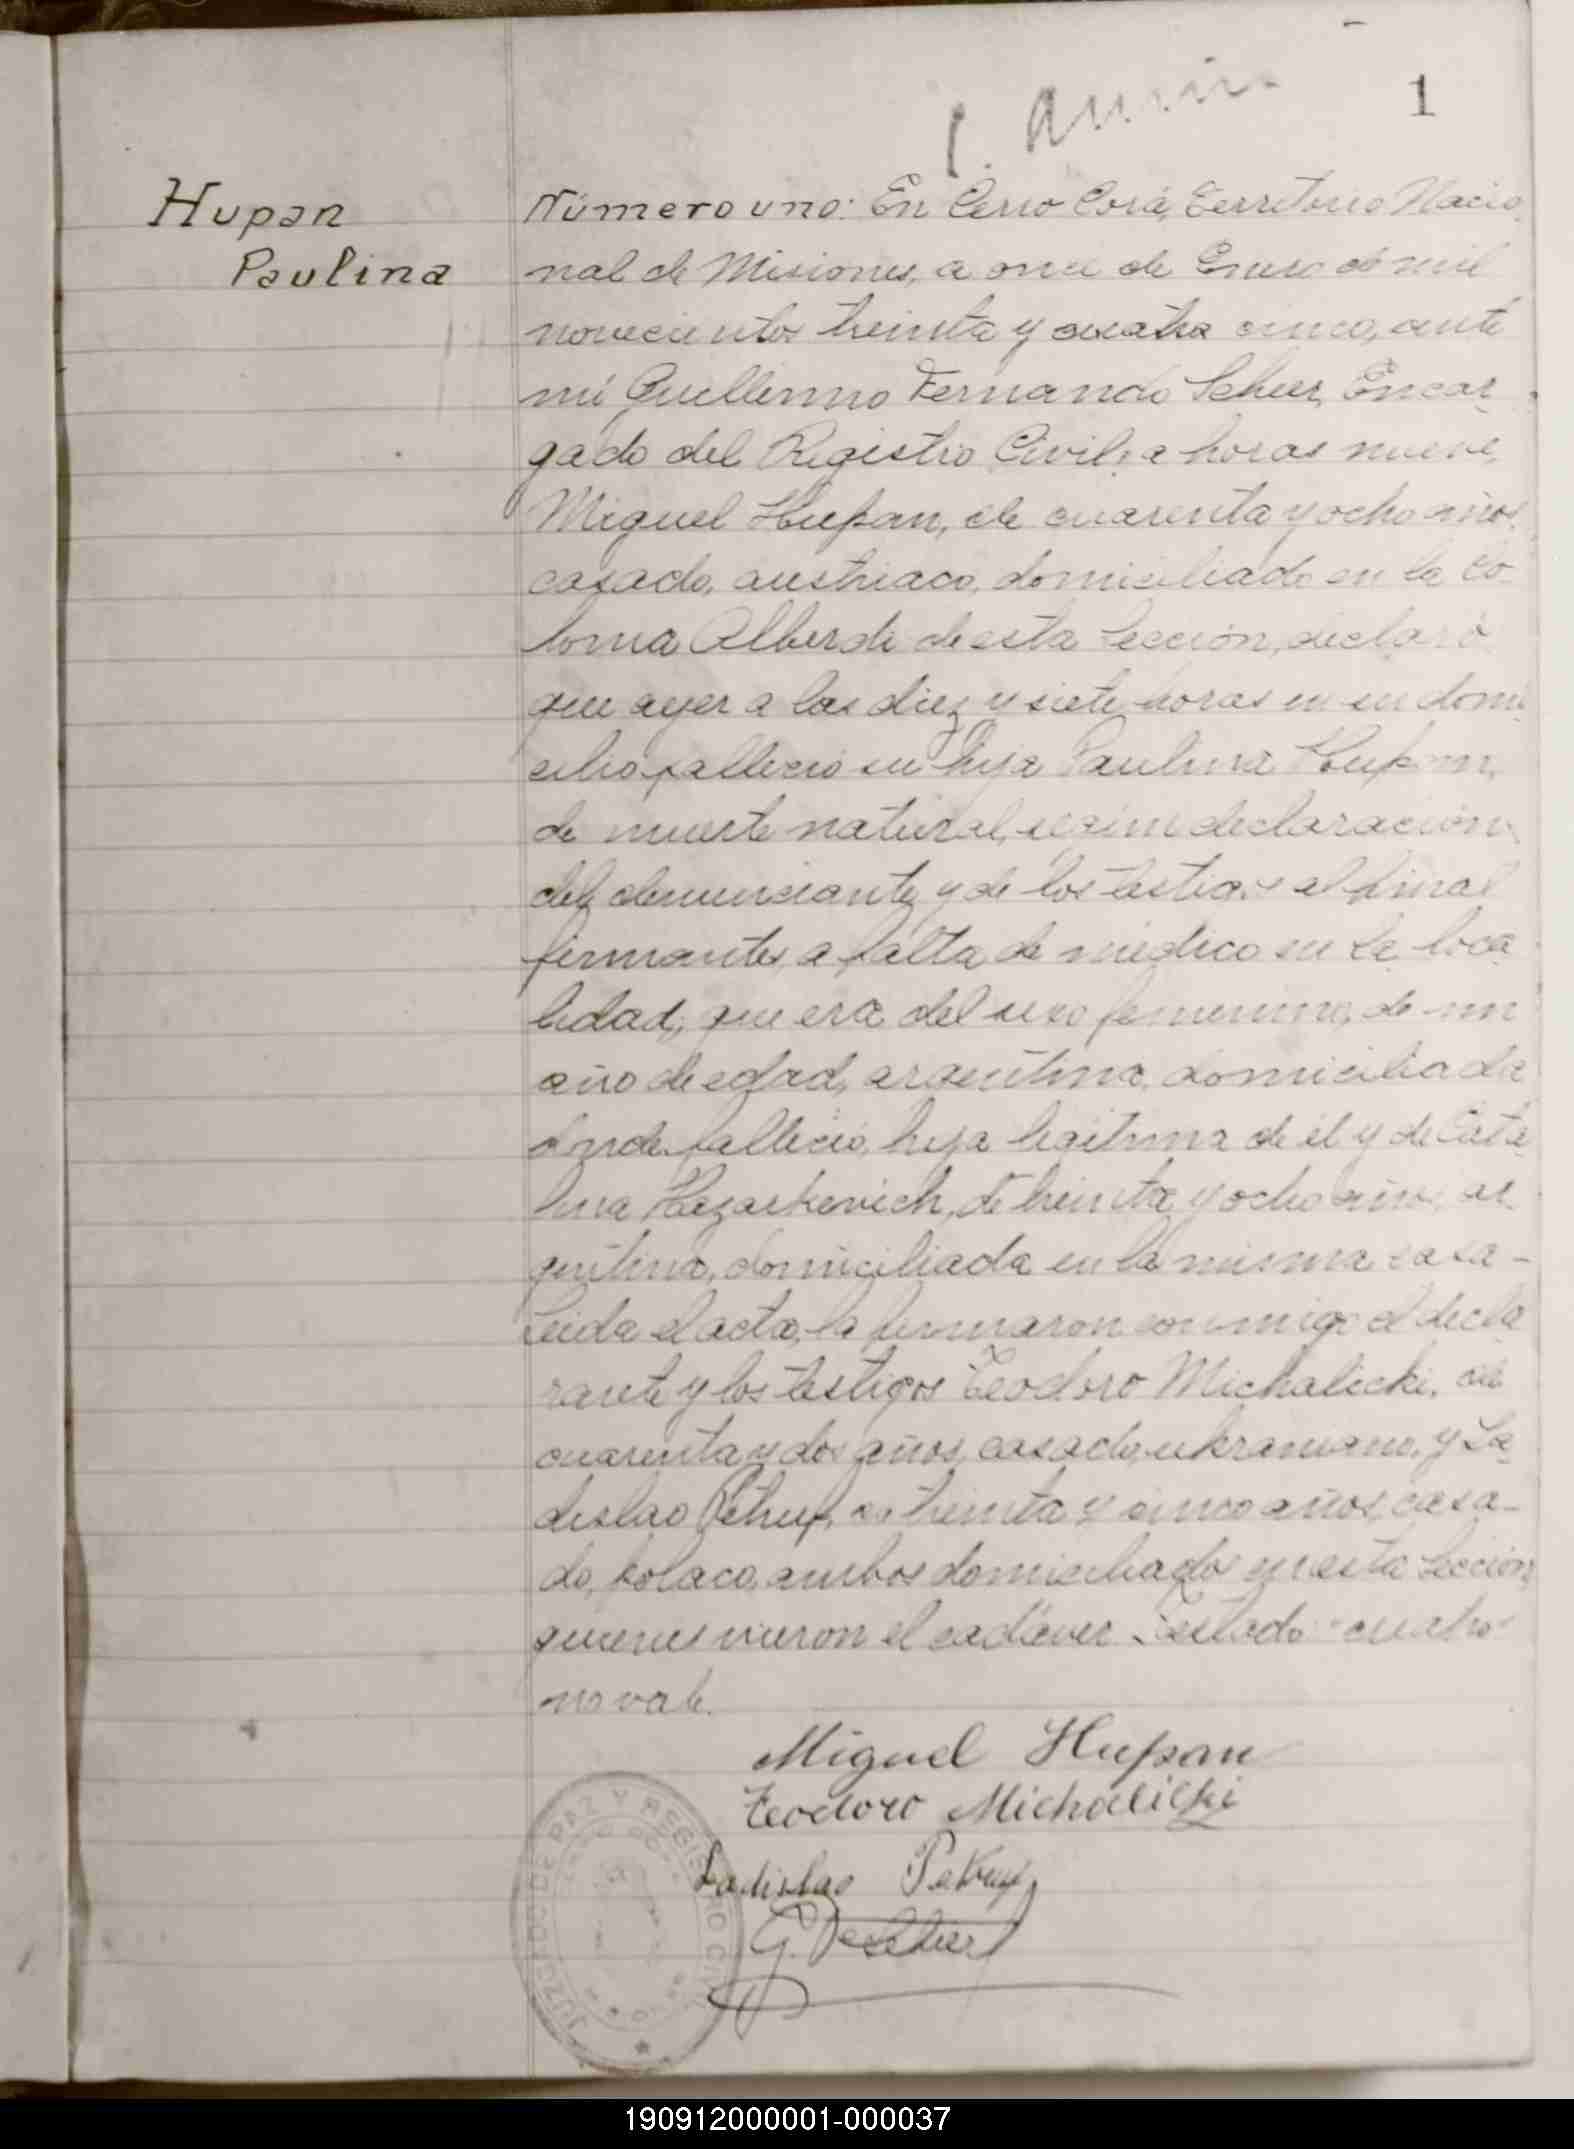 1
Hupan
Paulina
Número uno: En Cerro Corá, Territorio Nacio
nal de Misiones, a once de Enero de mil
novecientos treinta y cuatro cinco, ante
mi Guillermo Fernando Scheer, Encar
gado del Registro Civil, a horas nueve,
Miguel Hupan, de cuarenta y ocho años,
casado, austriaco, domiciliado en la Co-
lonia Alberdi de esta Sección, declaró
que ayer a las diez y siete horas en su domi
cilio falleció su hija Paulina Hupan,
de muerte natural, según declaración
del denunciante y de los testigos al final
firmantes, a falta de médico en la loca
lidad; que era del sexo femenino, de un
año de edad, argentina, domiciliada
donde falleció, hija legítima de él y de Cata
lina, de treinta y ocho años, ar-
gentina, domiciliada en la misma casa-
Leída el acta, la firmaron conmigo el decla
rante y los testigos Teodoro Michalicki, de
cuarenta y dos años, casado, ukraniano, y La
dislao Petruf, de treinta y cinco años, casa-
do, polaco, ambos domiciliados en esta Sección
quienes vieron el cadáver. Testado: cuatro
no vale.
Miguel Hupan
Teodoro Michalicki
Ladislao
JUZGADO DE PAZ Y REGISTRO CIVIL
190912000001-000037